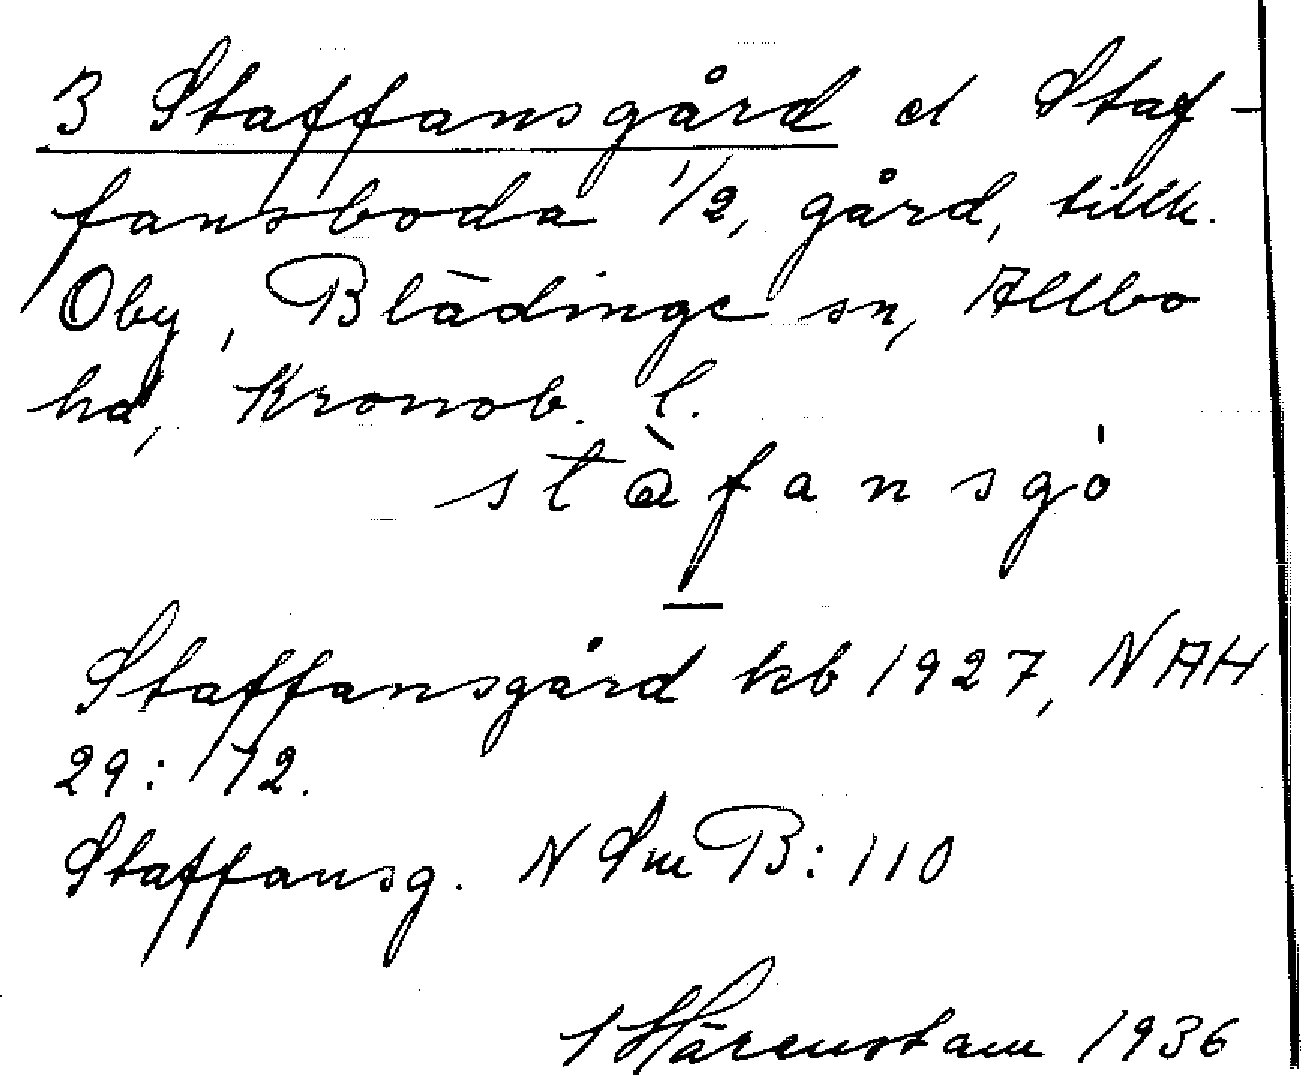 3 Staffansgård el Staf-
fansboda 1/2, gård, tillh.
Oby, Blädinge sn, Allbo
hd, Kronob. l.
stàfansgó
Staffansgård kb 1927, NAH
29: 12.
Staffansg. N Sm B: 110
Härenstam 1936